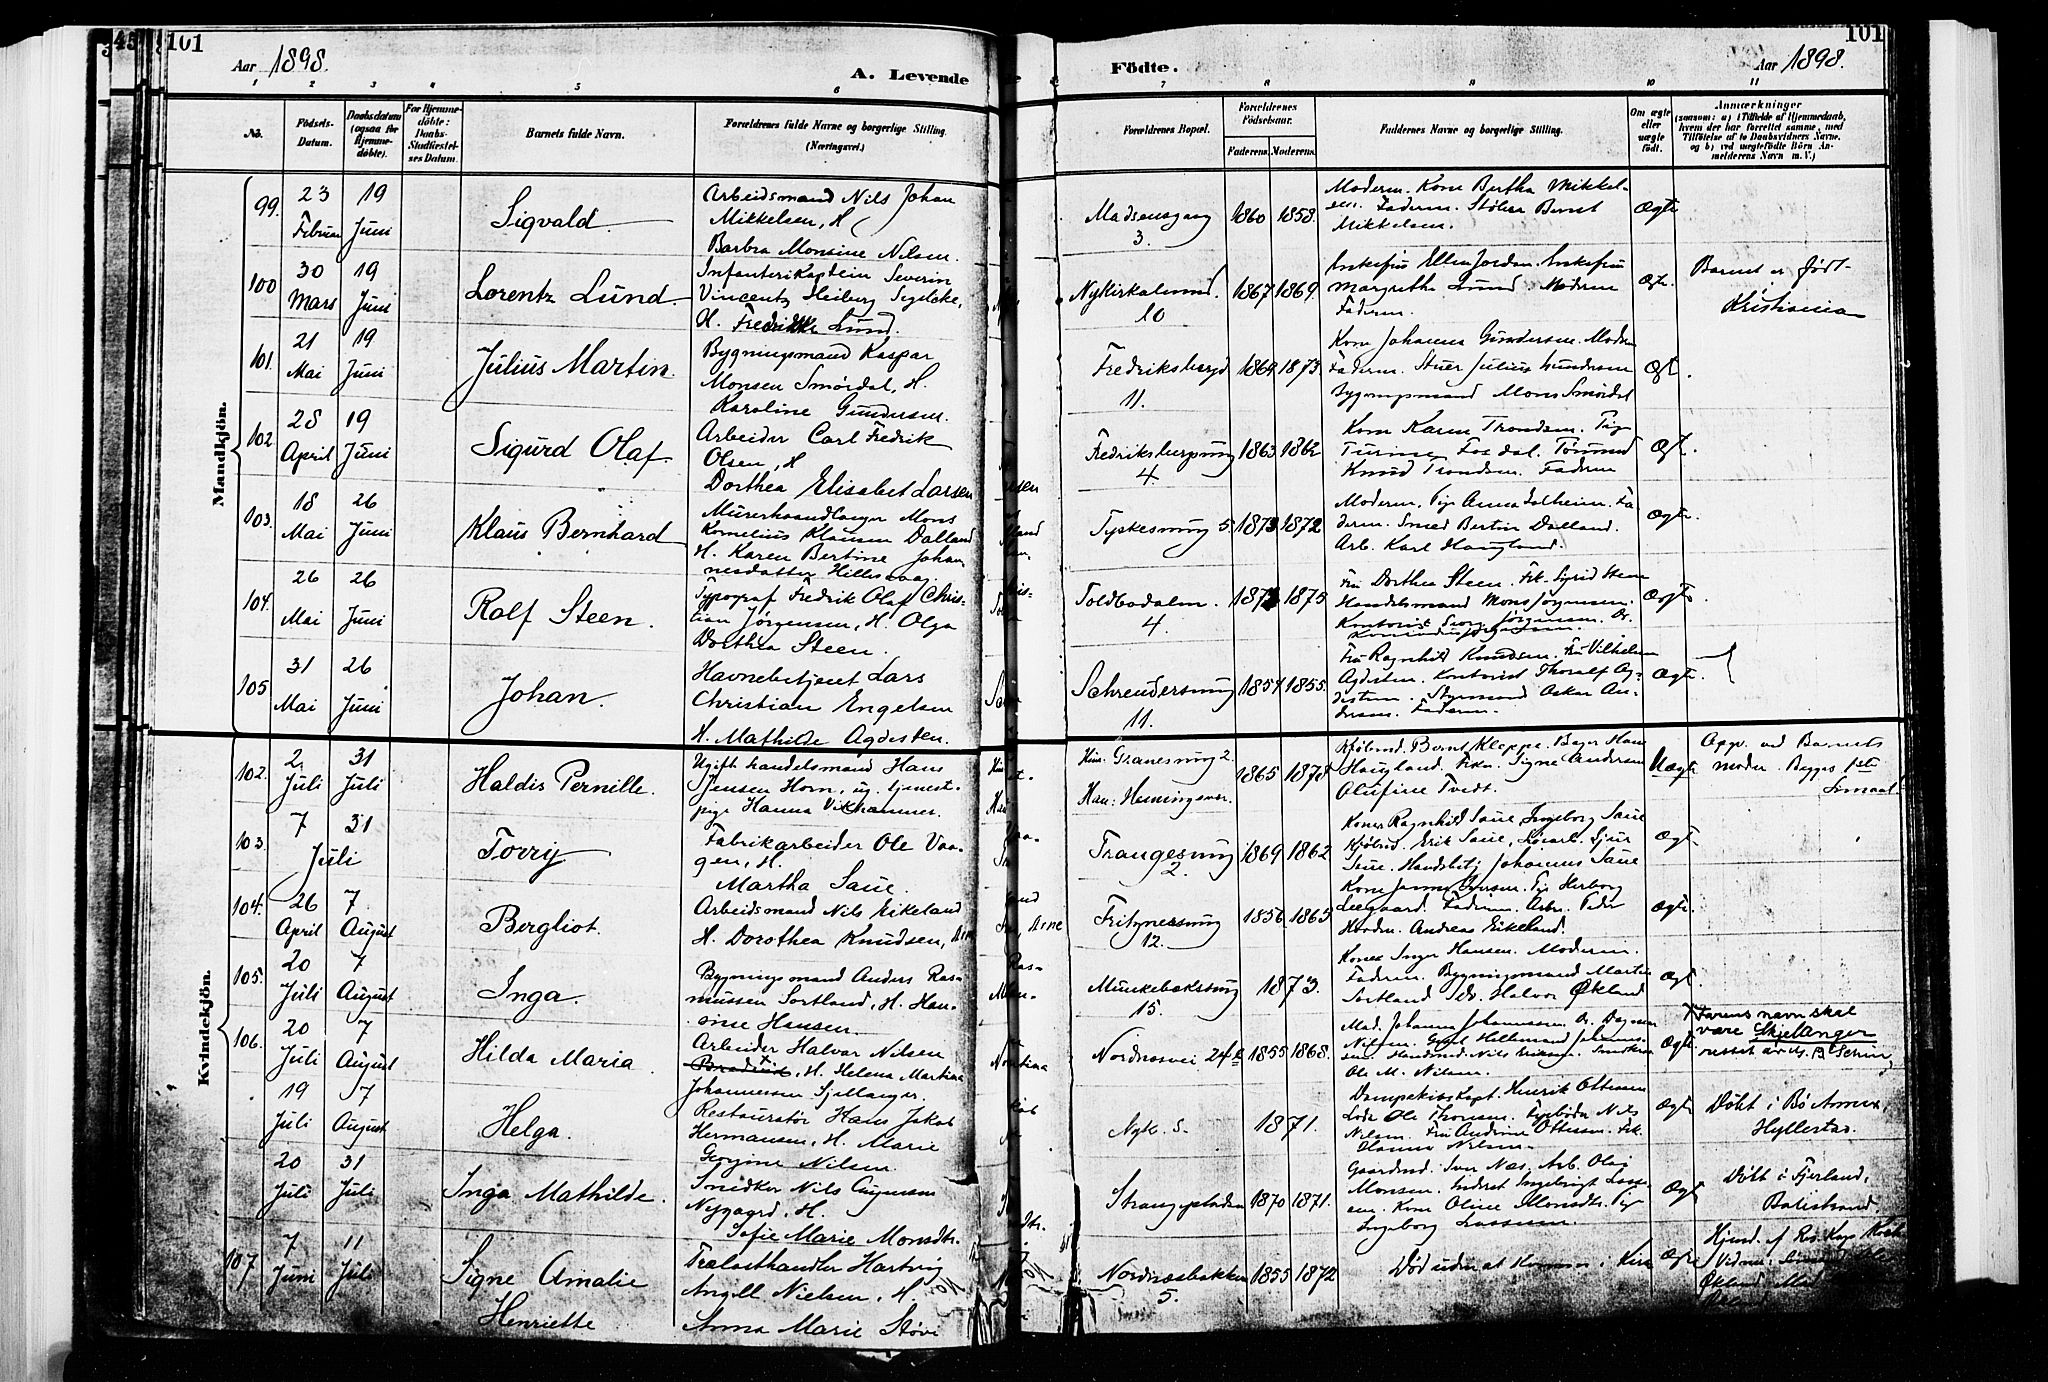 101
Aar 1898.
A. Levende
Födte.
Aar 1898.
101
1 2 3 4 5 6
7 8 9 10 11
No.
Födsels-
Datum.
Daabsdatum
(ogsaa for
Hjemme-
döbte).
For Hjemme-
döbte:
Daabs-
Stadfæstel-
ses Datum.
Barnets fulde Navn.
Forældrenes fulde Navne og borgerlige Stilling.
(Næringsvei.)
Forældrenes Bopæl.
Forældrenes
Födselsaar.
Faderens. Moderens.
Faddernes Navne og borgerlige Stilling.
Om ægte
eller
uægte
födt.
Anmærkninger
(saasom: a) i Tilfælde af Hjemmedaab,
hvem der har forrettet samme, med
Tilföielse af to Daabsvidners Navne.
og b) ved uægtefödte Börn An-
melderens Navn m. V.)
Mandkjön.
99. 23 Februar 19 Juni
Sigvald
Arbeidsmand Nils Johan
Mikkelsen, H
Barbra Monsine Nilsen.
Madsensgang
3.
1860 1858.
Moderen. Kone Bertha Mikkel-
sen. Faderen. Bernt
Mikkelsen.
Ægte
100 30 Mars 19 Juni
Lorentz Lund
Infanterikaptein Severin
Vincentz Heiberg Segelcke,
H. Fredrikke Lund.
Nykirkealmd.
10
1867 1869.
Enkefru Ellen Jordan. Enkefru
Margrethe Lund. Moderen
Faderen.
Ægte.
Barnet er født
Kristiania
101. 21 Mai 19 Juni
Julius Martin.
Bygningsmand Kaspar
Monsen Smørdal, H.
Karoline Gundersen.
Fredriksbergd
11.
1864 1873.
Kone Johanna Gundersen. Modern
Faderen. Stuer Julius Gundersen
Bygningsmand Mons Smørdal
Ægt.
102. 28 April 19 Juni
Sigurd Olaf.
Arbeider Carl Fredrik
Olsen, H
Dorthea Elisabet Larsen
Fredriksbergsmug
4.
1863 1862
Kone Karen Trondsen. Pig
Knud Trondsen. Faderen
Ægt.
103. 18 Mai 26 Juni
Klaus Bernhard
Murerhaandlanger Mons
Kornelius Klausen Dalland
H. Karen Bertine Johan
nesdatter Hillesvaag.
Tyskesmug 5.
1873 1872
Moderen. Pige Anna Solheim. Fa
deren. Smed Bertin Dalland.
Arb. Karl Haugland.
Ægte.
104. 26 Mai 26 Juni
Rolf Steen.
Typograf Fredrik Olaf Chris-
tian Jørgensen, H. Olga
Dorthea Steen.
Toldbodalm.
4.
1875
Fru Dorthea Steen. Frk. Sigrid Steen
Handelsmand Mons Jørgensen.
Kontorist Georg Jørgensen.
Ægte
105 31 Mai 26 Juni
Johan.
Havnebetjent Lars
Christian Engelsen
H. Mathilde Agdesten.
Schreudersmug
11.
1854 1855.
Fru Ragnhild Knudsen. Fru Vilhelmine
Agdesten. Kontorist Thoralf Ag-
desten. Styrmand Oskar An-
dersen. Faderen.
Ægte
Kvindekjön.
102. 2. Juli 31 Juli
Haldis Pernille.
Ugift handelsmand Hans
Jensen Horn, ug. tjenest-
pige Hanna Vikhammer.
Hun: Granesmug 2.
Han: Henningsvær.
1865 1878
Kjøbmd. Bernt Kleppe. Bager Hans
Haugland. Frkn. Signe Andersen
Olufine Tvedt.
Uægte
Opgv. ved Barnets
moder. Begges 1ste
Gang
103. 7 Juli 31
Torry
Fabrikarbeider Ole Vaa-
gen, H.
Martha Saue.
Trangesmug
2.
1869 1862
Kone Ragnhild Saue, Ingeborg Saue
Kjøbmd. Erik Saue,
Saue. Handelsbetj Johannes Saue
Ægt.
104. 26 April 7. August
Bergliot.
Arbeidsmand Nils Eikeland
H. Dorothea Knudsen, Arne
Fritznersmug
12.
1856 1865
Kone Jenny Pige Herborg
Leegaard. Faderen. Arbr. Peder
Andreas Eikeland.
Ægte.
105. 20 Juli 7 August
Inga.
Bygningsmand Anders Ras-
mussen Sortland, H. Han-
sine Hansen.
Munkebæksmug
15.
1873.
Kone Inger Hansen. Moderen.
Faderen. Bygningsmand Martin
Sortland Halvor Økland
Ægt.
106. 20 Juli 7 August
Hilda Maria.
Arbeider Halvor Nilsen
H. Helena Martina
Johannessen Sjellanger.
Nordnæsvei 24
1855 1868.
Mad. Johanna Johannessen
Ole M. Nilsen.
Ægte
Farens navn skal
være Skjelanger
19 Juli 7 August
Helga.
Restauratør Hans Jakob
Hermansen, H. Marie
Georgine Nilsen.
Nyk. 5.
1871.
Dampskibskapt. Henrik Ottesen
Lods Ole Thomsen. Nils
Nilsen. Fru Andrine Ottesen. Frk.
Nilsen.
Ægte
Døbt i Bø Annex,
Hyllestad.
20 Juli 31 Juli
Inga Mathilde.
Snedker Nils
Nygaard, H.
Sofie Marie Monsdtr.
Strangepladsen
1870 1871.
Gaardmd. Iver Næs. Arb. Olai
Monsen. Ingebrigt Lasse
Kone Oline Monsdtr. Pige
Ingeborg Lassesen.
Ægt
Døbt i Fjerland,
Balestrand.
107. 7 Juni 11 Juli
Signe Amalie
Henriette
Trælasthandler Hartvig
Angell Nielsen, H.
Anna Marie Støve
Nordnæsbakken
5.
1855 1872
Død uden at komme i Kirke
Ægte
Hjmd. af Res. Kap.
Vidner:
Økland